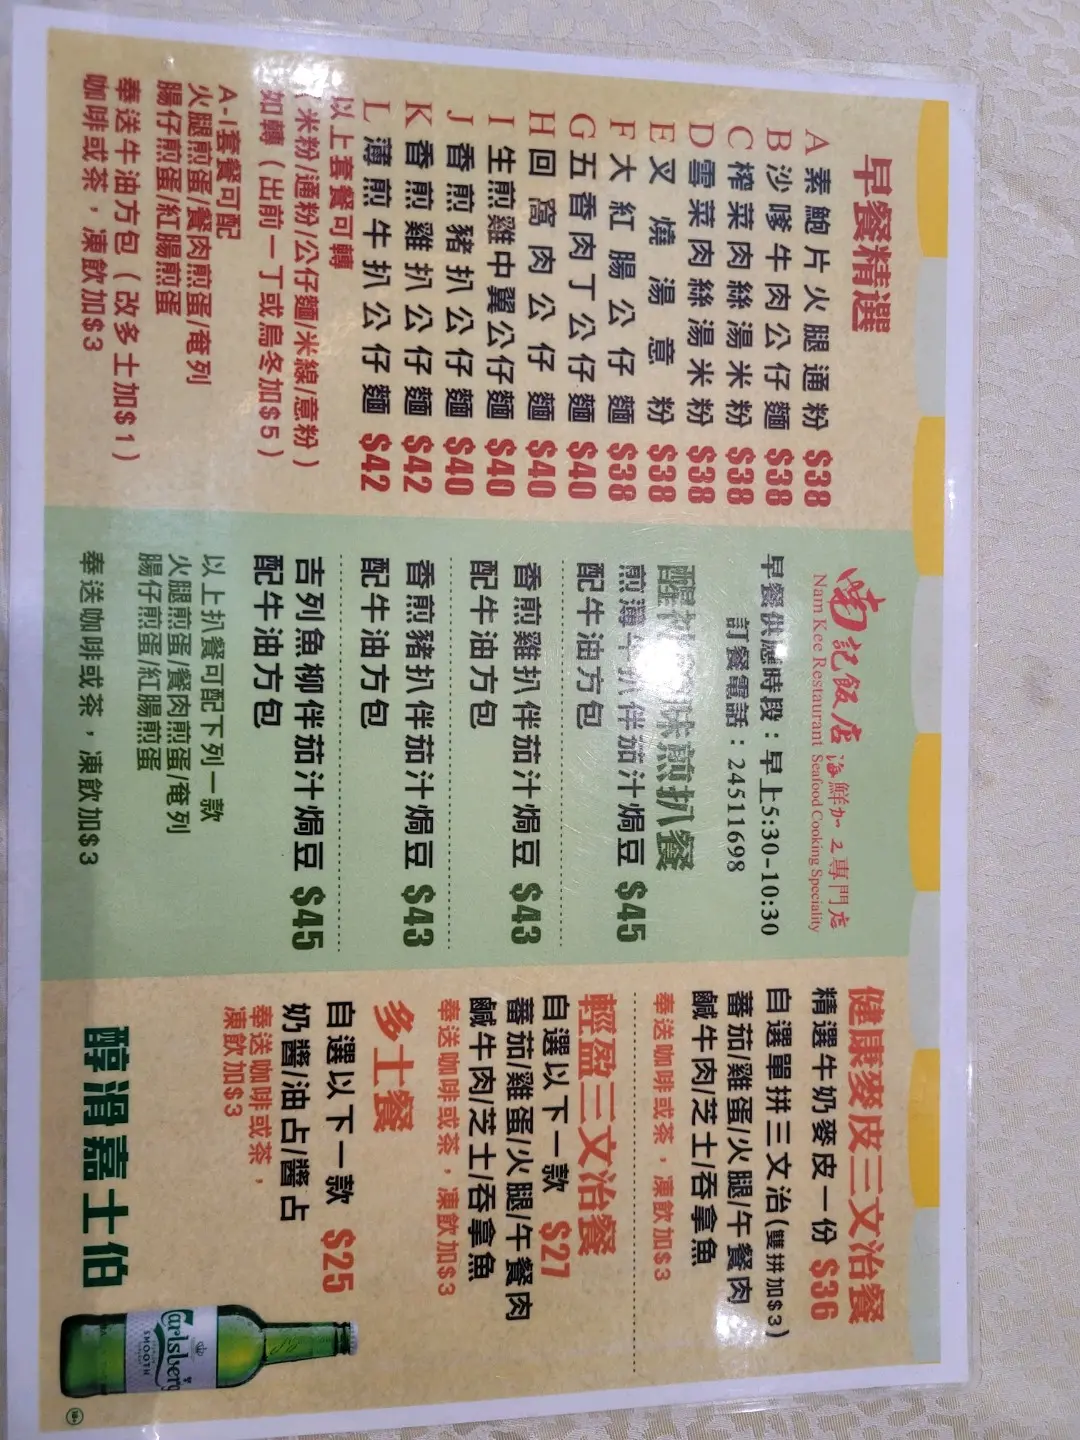 早餐精選
A 素鮑片火腿通粉 $38
B 沙嗲牛肉公仔麵 $38
C 榨菜肉絲湯米粉 $38
D 雪菜肉絲湯米粉 $38
E 叉燒湯意粉 $38
F 大紅腸公仔麵 $38
G 五香肉丁公仔麵 $40
H 回窩肉公仔麵 $40
I 生煎雞中翼公仔麵 $40
J 香煎豬扒公仔麵 $40
K 香煎雞扒公仔麵 $42
L 薄煎牛扒公仔麵 $42
以上套餐可轉
(米粉/通粉/公仔麵/米線/意粉)
如轉(出前一丁或烏冬加$5)
A-I套餐可配
火腿煎蛋/餐肉煎蛋/奄列
腸仔煎蛋/紅腸煎蛋
奉送牛油方包(改多士加$1)
咖啡或茶,凍飲加$3
南記飯店 海鮮加工專門店
Nam Kee Restaurant Seafood Cooking Speciality
早餐供應時段:早上5:30-10:30
訂餐電話:24511698
醒 煎扒餐
煎薄牛扒伴茄汁焗豆 $45
配牛油方包
香煎雞扒伴茄汁焗豆 $43
配牛油方包
香煎豬扒伴茄汁焗豆 $43
配牛油方包
吉列魚柳伴茄汁焗豆 $45
配牛油方包
以上扒餐可配下列一款
火腿煎蛋/餐肉煎蛋/奄列
腸仔煎蛋/紅腸煎蛋
奉送咖啡或茶,凍飲加$3
健康麥皮三文治餐
精選牛奶麥皮一份 $36
自選單拼三文治(雙拼加$3)
蕃茄/雞蛋/火腿/午餐肉
鹹牛肉/芝士/吞拿魚
奉送咖啡或茶,凍飲加$3
輕盈三文治餐
自選以下一款 $27
蕃茄/雞蛋/火腿/午餐肉
鹹牛肉/芝士/吞拿魚
奉送咖啡或茶,凍飲加$3
多士餐
自選以下一款 $25
奶醬/油占/醬占
奉送咖啡或茶,
凍飲加$3
醇滑嘉士伯
Carlsberg
SMOOTH
18+